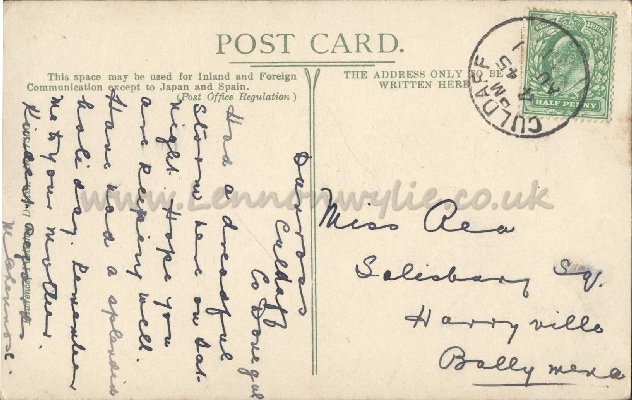 POST CARD.
This space may be used for Inland and Foreign
Communication except to Japan and Spain.
(Post Office Regulation)
THE ADDRESS ONLY TO BE
WRITTEN HERE
HALF PENNY
CULDAFF
7 45 PM
AU
1
Culdaff
Co Donegal
Had a dreadful
storm here on Sat.
night. Hope you
are keeping well.
Have had a splendid
holiday. Remember
me to your mother.
Kindest
Miss Rea
Salisbury Sq.
Harryville
Ballymena
www.Lennonwylie.co.uk